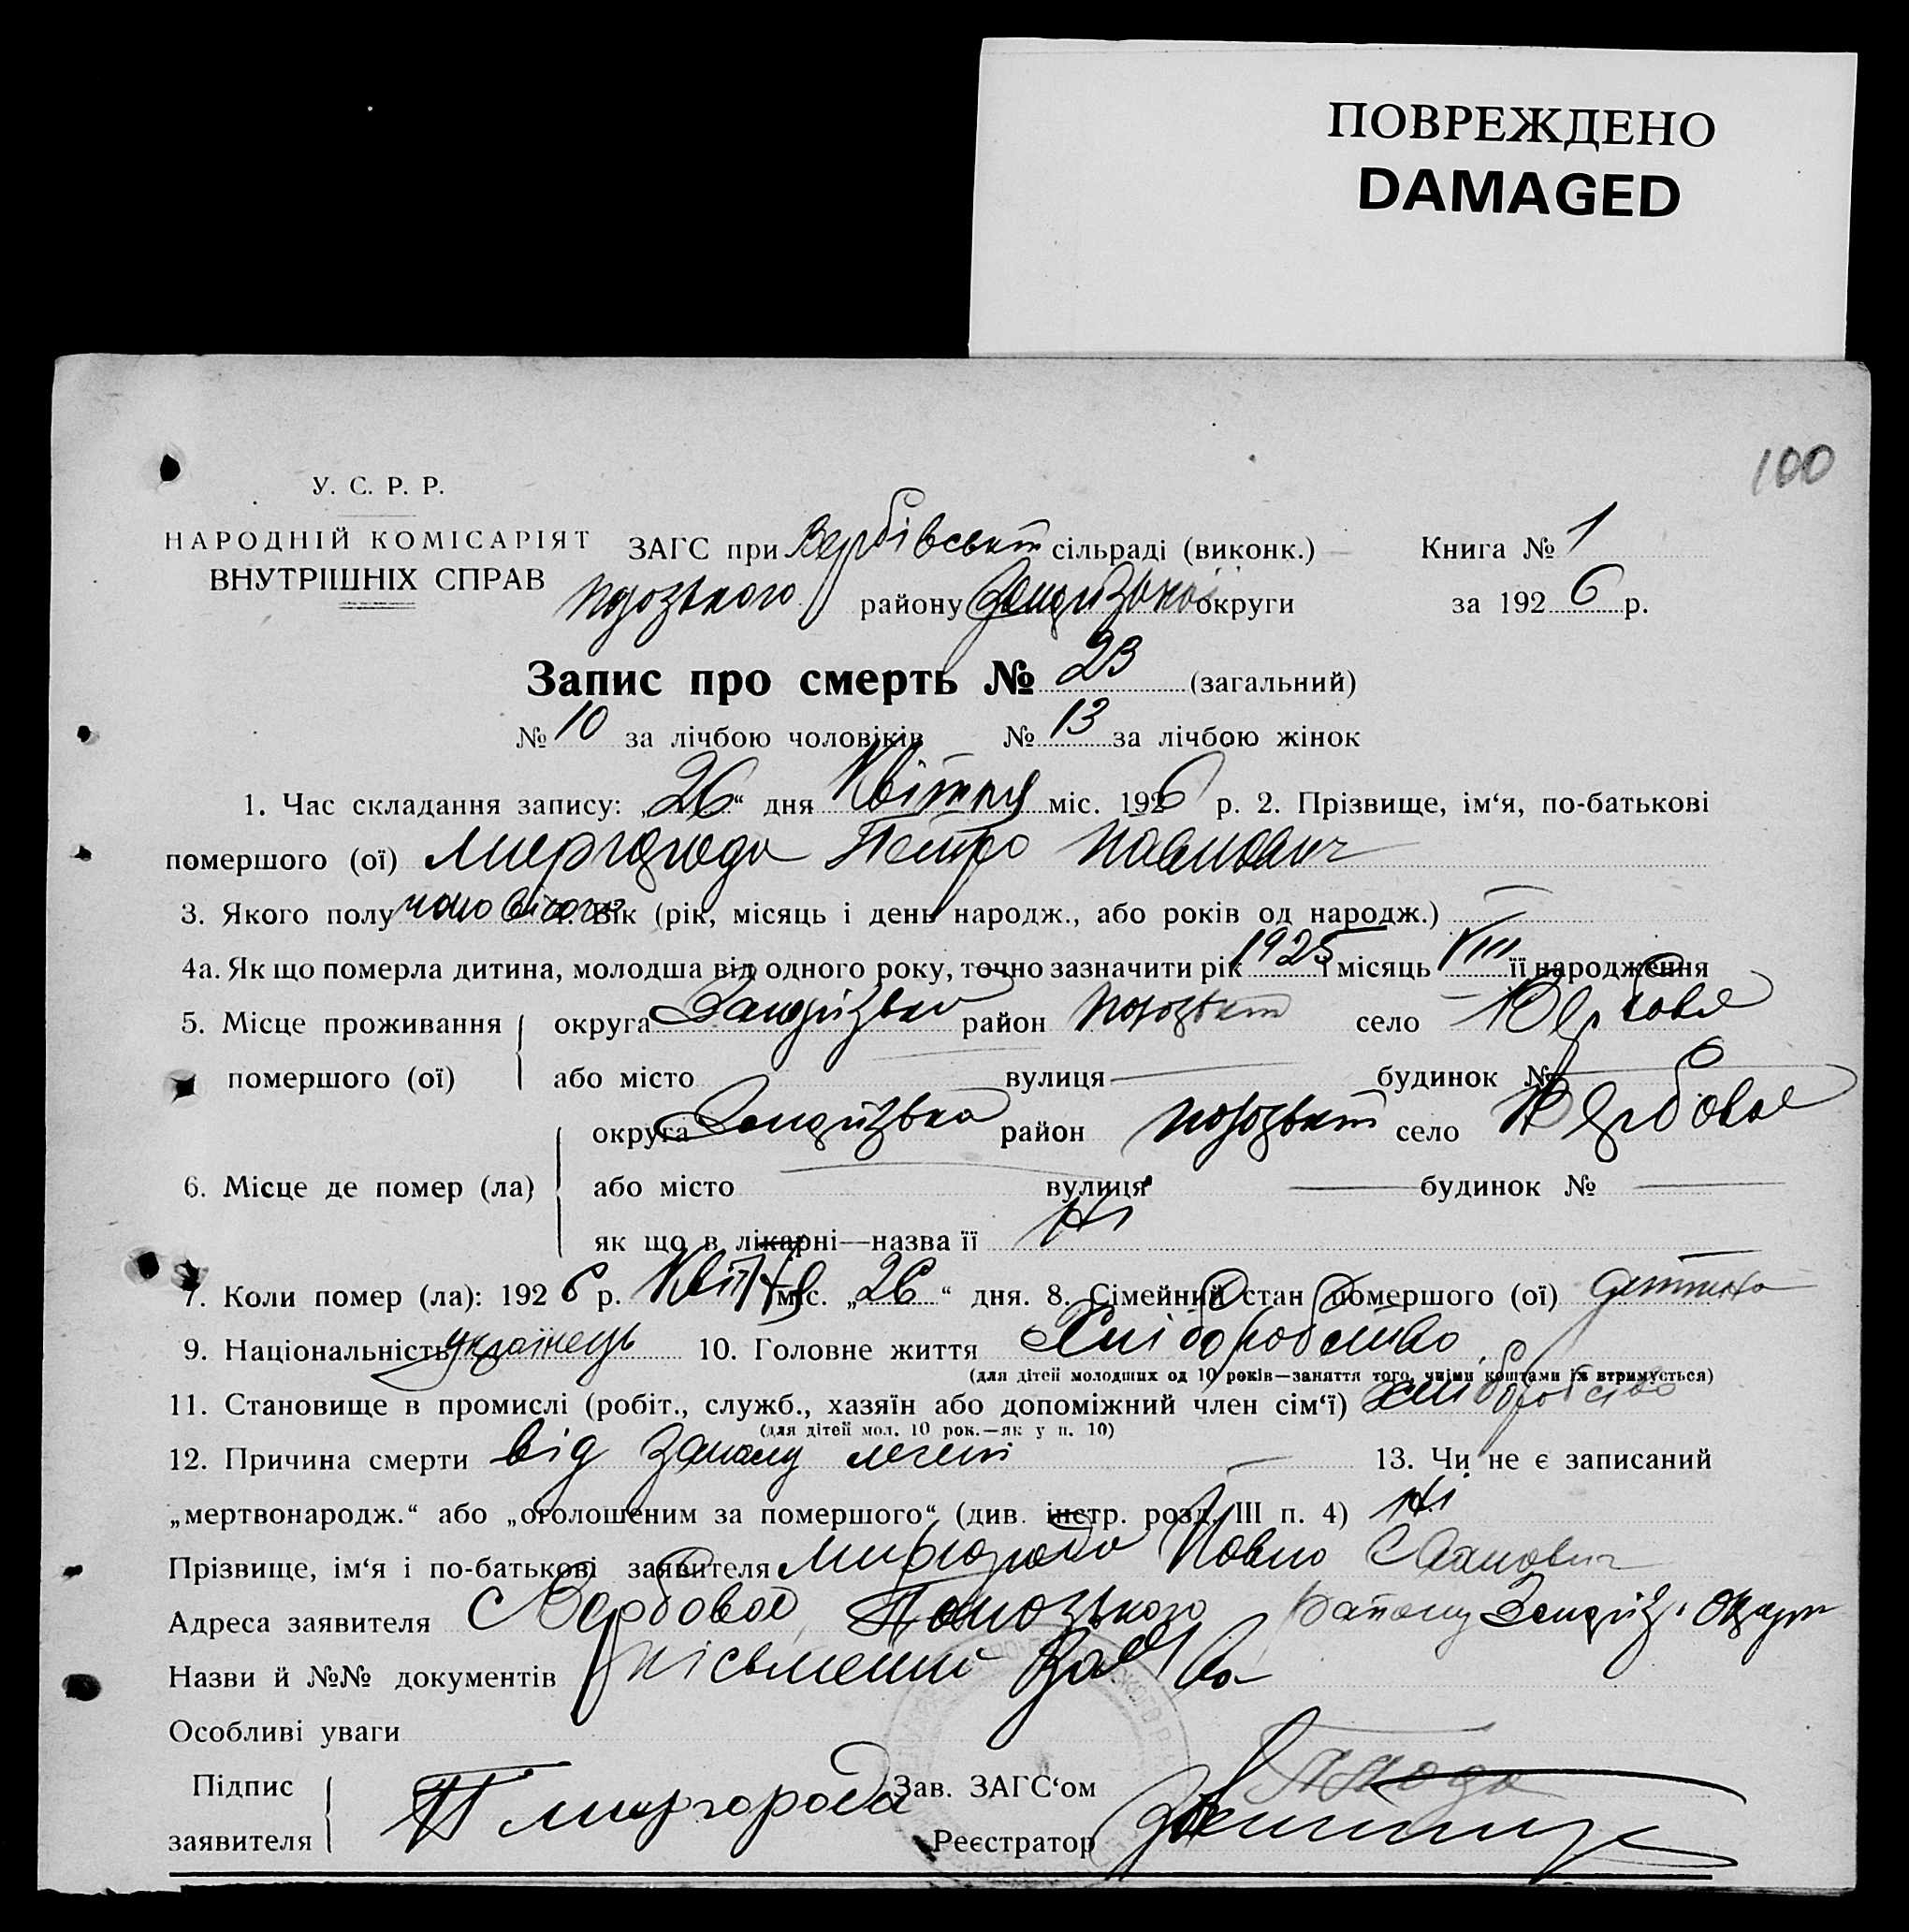 ПОВРЕЖДЕНО
DAMAGED
100
У. С. Р. Р.
НАРОДНІЙ КОМІСАРІЯТ
ВНУТРІШНІХ СПРАВ
ЗАГС при Вербівськ сільраді (виконк.) Книга № 1
району округи за 192 6 р.
Запис про смерть № 23 (загальний)
№ 10 за лічбою чоловіків № 13 за лічбою жінок
1. Час складання запису: „26“ дня Квітня міс. 1926 р. 2. Прізвище, ім‘я, по-батькові
помершого (ої) Миргорода Петро Павлович
3. Якого полу чоловічого 4. Вік (рік, місяць і день народж., або років од народж.)
4а. Як що померла дитина, молодша від одного року, точно зазначити рік 1925 і місяць VIII її народження
5. Місце проживання округа район село Вербове
помершого (ої) або місто вулиця будинок №
округа район село Вербове
6. Місце де помер (ла) або місто вулиця будинок №
як що в лікарні—назва її Ні
7. Коли помер (ла): 192 6 р. Квітня міс. „26“ дня. 8. Сімейний стан помершого (ої) дитина
9. Національність українець 10. Головне життя Хліборобство
(для дітей молодших од 10 років—заняття того, чиїми коштами їх втримується)
11. Становище в промислі (робіт., служб., хазяїн або допоміжний член сім‘ї) хліборобство
(для дітей мол. 10 рок.—як у п. 10)
12. Причина смерти від запалу легень 13. Чи не є записаний
„мертвонародж.“ або „оголошеним за помершого“ (див. інстр. розд. III п. 4) Ні
Прізвище, ім‘я і по-батькові заявителя Миргорода Павло
Адреса заявителя С Вербове
Назви й №№ документів
Особливі уваги
Підпис
заявителя П Миргорода
Зав. ЗАГС‘ом
Реєстратор